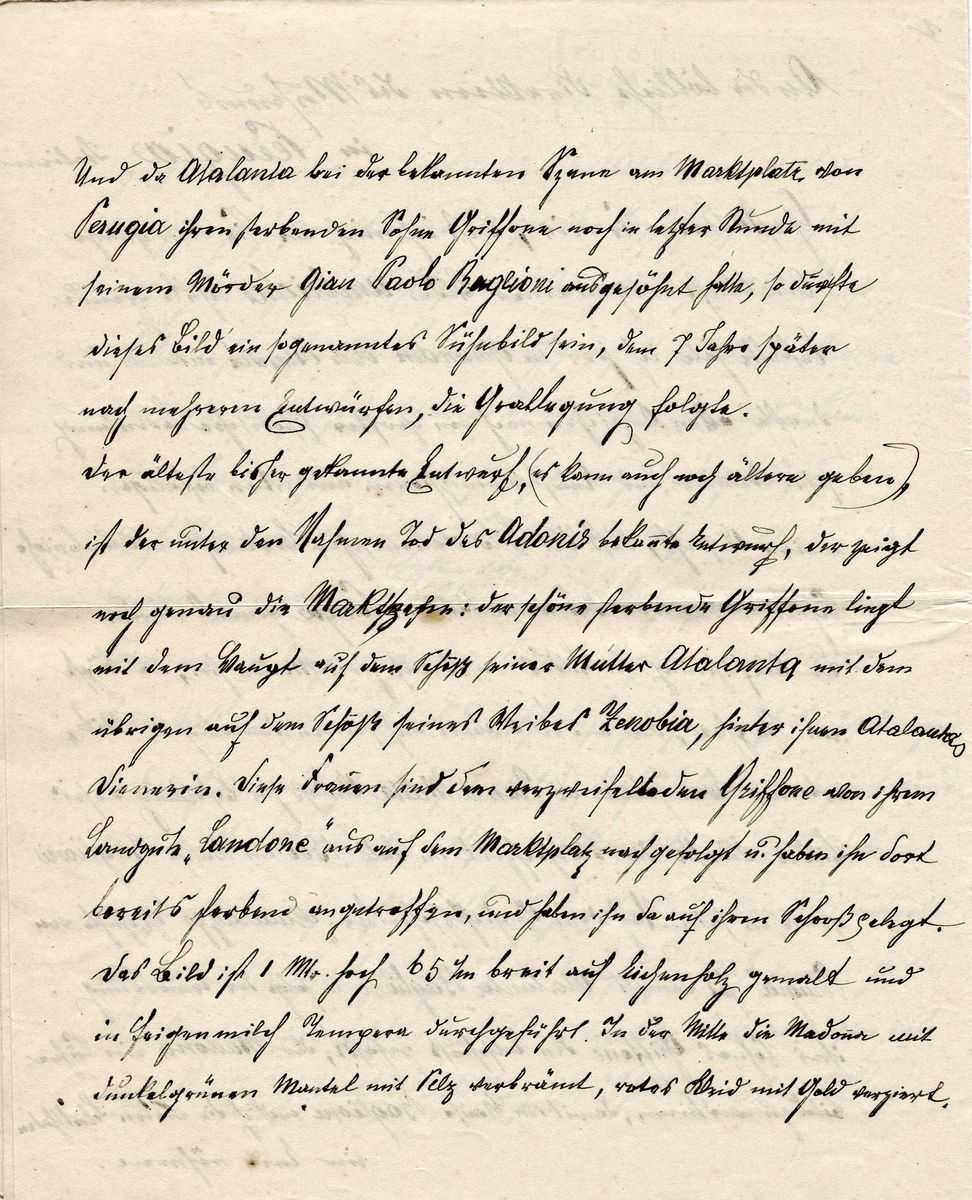 Und da Atalanta bei der bekannten Szene am Marktplatz von
Perugia ihren sterbenden Sohne Griffone noch in letzter Stunde mit
seinem Mörder Gian Paolo Baglioni ausgesöhnt hatte, so dürfte
dieses Bild ein sogenanntes Sühnebild sein, dem 7 Jahre später
nach mehreren Entwürfen, die Grablegung folgte.
Der älteste bisher gekannte Entwurf, (es kann auch noch ältere geben),
ist der unter den Nahmen Tod des Adonis bekannte Entwurf, der zeigt
noch genau die Marktszene: der schöne sterbende Griffone liegt
mit dem Haupt auf dem Schoß seiner Mutter Atalanta mit dem
übrigen auf dem Schoß seines Weibes Zenobia, hinter ihnen Atalantas
Dienerin. Diese Frauen sind dem verzweifelteden Griffone von ihrem
Landgute „Landone" aus auf dem Marktplatz nachgefolgt u. haben ihn dort
bereits sterbend angetroffen, und haben ihn da auf ihren Schooß gelegt.
Das Bild ist 1 Mr. hoch 65 c/m breit auf Eichenholz gemalt und
in Feigenmilch Tempera durchgeführt. In der Mitte die Madonna mit
dunkelgrünen Mantel mit Pelz verbrämt, rotes Kleid mit Gold verziert.